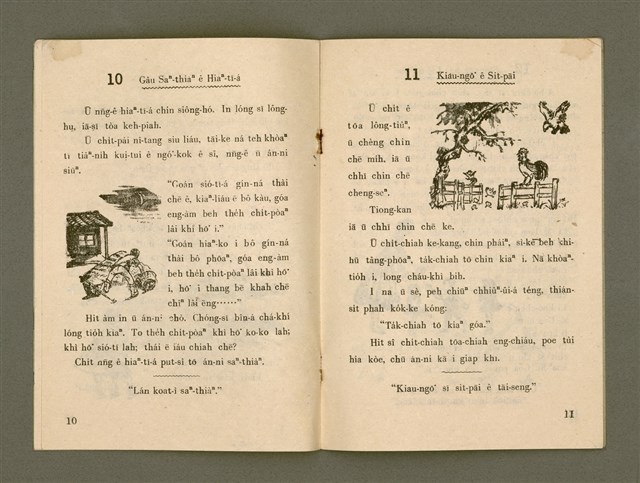 10 Gâu Saⁿ-thiàⁿ ê Hiaⁿ-tī-á
Ū nn̄g-ê hiaⁿ-tī-á chin siông-hó. In lóng sī lông-
hu, iā-sī tòa keh-piah.
Ū chi̍t-pái nî-tang siu liáu, tāi-ke nā teh khòaⁿ
tī tiâⁿ-nih kui-tui ê ngó͘-kok ê sî, nn̄g-ê ū án-ni
siūⁿ.
"Goán sió-tī-á gín-ná thài
chē ê, kiaⁿ-liáu ē bô kàu, góa
eng-àm beh the̍h chi̍t-pòaⁿ
lâi khì hō͘ i."
"Goán hiaⁿ-ko i bô gín-ná
thài bô phōaⁿ, góa eng-àm
beh the̍h chi̍t-pòaⁿ lâi khì hō͘
i, hō͘ i thang bē khah chē
chîⁿ lâi ēng……"
Hit àm in ū án-ni chò. Chóng-sī bîn-á chá-khí
lóng tio̍h kiaⁿ. To the̍h chi̍t-pòaⁿ khì hō͘ ko-ko lah;
khì hō͘ sió-tī lah; thái ē iáu chiah chē?
Chit nn̄g ê hiaⁿ-tī-á put-sî to án-ni saⁿ-thiàⁿ.
"Lán koat-ì saⁿ-thiàⁿ."
10
11 Kiau-ngō͘ ê Sit-pāi
Ū chi̍t ê
tōa lông-tiûⁿ,
ū chèng chin
chē mi̍h, iā ū
chhī chin chē
cheng-seⁿ.
Tiong-kan
iā ū chhī chin chē ke.
Ū chi̍t-chiah ke-kang, chin pháiⁿ, sì-kè beh khi-
hū tâng-phōaⁿ, ta̍k-chiah tō chin kiaⁿ i. Nā khòaⁿ-
tio̍h i, long cháu-khì bih.
I na ū sè, peh chiūⁿ chhiûⁿ-ûi-á téng, thián-
si̍t phah ko̍k-ke kóng:
"Ta̍k-chiah tō kiaⁿ góa."
Hit sî chi̍t-chiah tōa-chiah eng-chiáu, poe tùi
hia kòe, chū án-ni kā i giap khì.
"Kiau-ngō͘ sī sit-pāi ê tāi-seng."
11